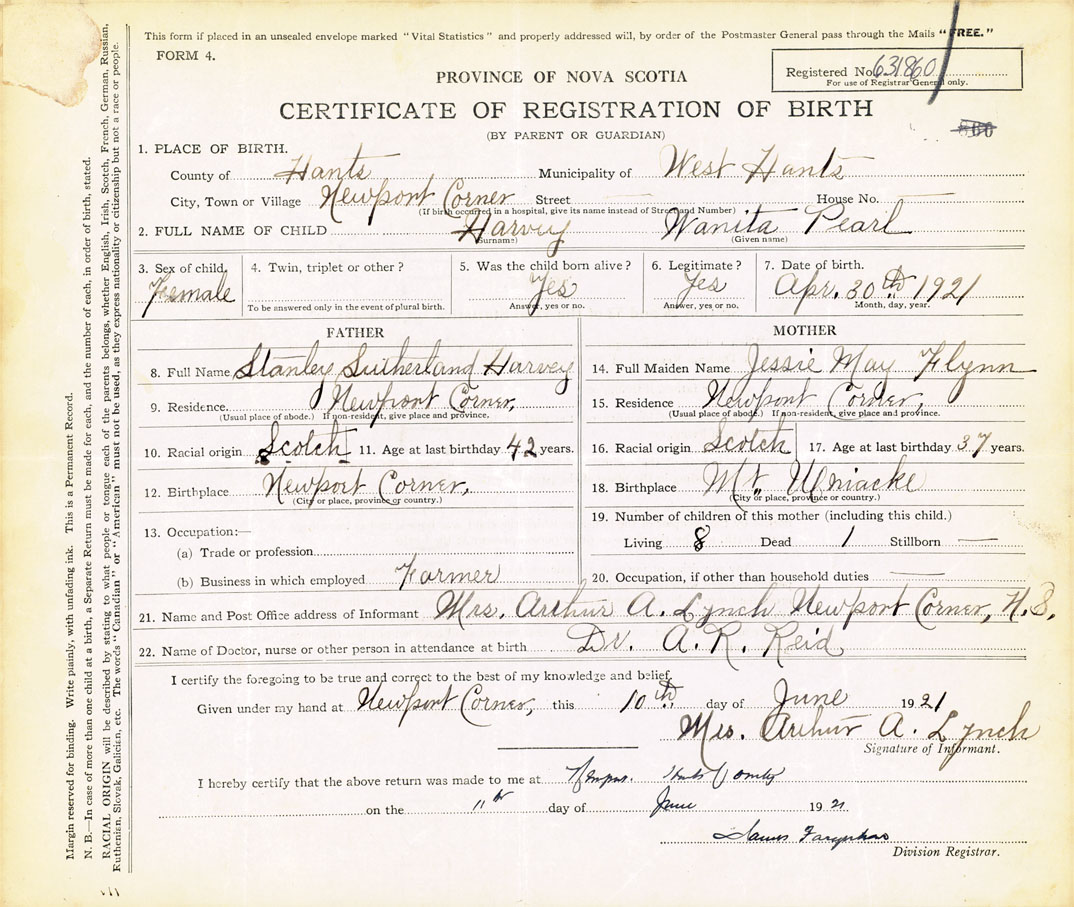 This form if placed in an unsealed envelope marked "Vital Statistics" and properly addressed will, by order of the Postmaster General pass through the Mails "FREE."
FORM 4.
Registered No. 631860
For use of Registrar General only.
PROVINCE OF NOVA SCOTIA
CERTIFICATE OF REGISTRATION OF BIRTH
(BY PARENT OR GUARDIAN)
1. PLACE OF BIRTH.
County of Hants Municipality of West Hants
City, Town or Village Newport Corner Street House No.
(If birth occurred in a hospital, give its name instead of Street and Number)
2. FULL NAME OF CHILD Harvey Wanita Pearl
(Surname) (Given name)
3. Sex of child. 4. Twin, triplet or other? 5. Was the child born alive? 6. Legitimate? 7. Date of birth.
Female Yes Yes Apr. 30th 1921
To be answered only in the event of plural birth. Answer, yes or no. Answer, yes or no. Month, day, year.
FATHER
8. Full Name Stanley Sutherland Harvey
9. Residence. Newport Corner,
(Usual place of abode.) If non-resident, give place and province,
10. Racial origin Scotch 11. Age at last birthday 42 years.
12. Birthplace Newport Corner,
(City or place, province or country.)
13. Occupation:—
(a) Trade or profession
(b) Business in which employed Farmer
MOTHER
14. Full Maiden Name Jessie May Flynn
15. Residence Newport Corner,
(Usual place of abode.) If non-resident, give place and province.
16. Racial origin Scotch 17. Age at last birthday 37 years.
18. Birthplace Mt. Uniacke
(City or place, province or country.)
19. Number of children of this mother (including this child.)
Living 8 Dead 1 Stillborn —
20. Occupation, if other than household duties —
21. Name and Post Office address of Informant Mrs. Arthur A. Lynch Newport Corner, N.S.,
22. Name of Doctor, nurse or other person in attendance at birth Dr. A. R. Reid
I certify the foregoing to be true and correct to the best of my knowledge and belief.
Given under my hand at Newport Corner, this 10th day of June 1921
Mrs. Arthur A. Lynch
Signature of Informant.
I hereby certify that the above return was made to me at Hants County
on the 11th day of June 1921
James Farquhar
Division Registrar.
Margin reserved for binding. Write plainly, with unfading ink. This is a Permanent Record.
N. B.—In case of more than one child at a birth, a Separate Return must be made for each, and the number of each, in order of birth, stated.
RACIAL ORIGIN will be described by stating to what people or tongue each of the parents belongs, whether English, Irish, Scotch, French, German, Russian,
Ruthenian, Slovak, Galician, etc. The words "Canadian" or "American" must not be used, as they express nationality or citizenship but not a race or people.